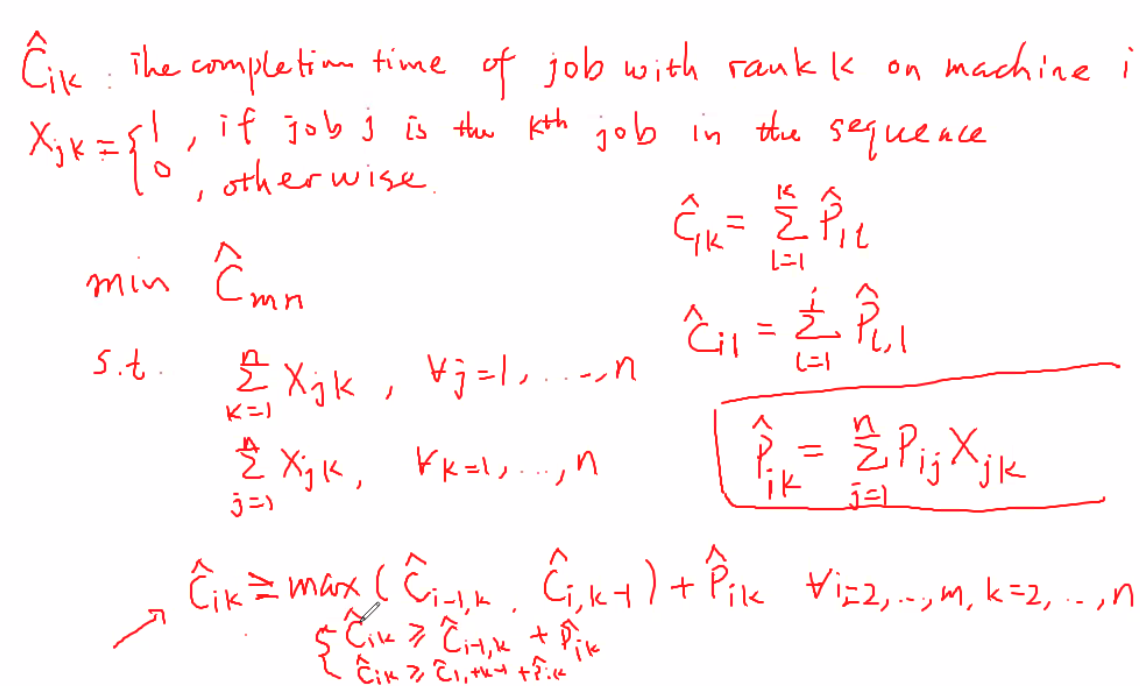 Ĉ_ik : The completion time of job with rank k on machine i
X_jk = { 1, if job j is the kth job in the sequence
0, otherwise.
Ĉ_1k = Σ_{l=1}^{k} P̂_1l
min Ĉ_mn
Ĉ_i1 = Σ_{l=1}^{i} P̂_l,1
s.t. Σ_{k=1}^{n} X_jk , ∀j=1, ..., n
P̂_ik = Σ_{j=1}^{n} P_ij X_jk
Σ_{j=1}^{n} X_jk, ∀k=1, ..., n
Ĉ_ik ≥ max ( Ĉ_i-1,k , Ĉ_i,k-1 ) + P̂_ik ∀i=2, .., m, k=2, .., n
{ Ĉ_ik ≥ Ĉ_i-1,k + P̂_ik
Ĉ_ik ≥ Ĉ_1,+k-1 + P̂_ik